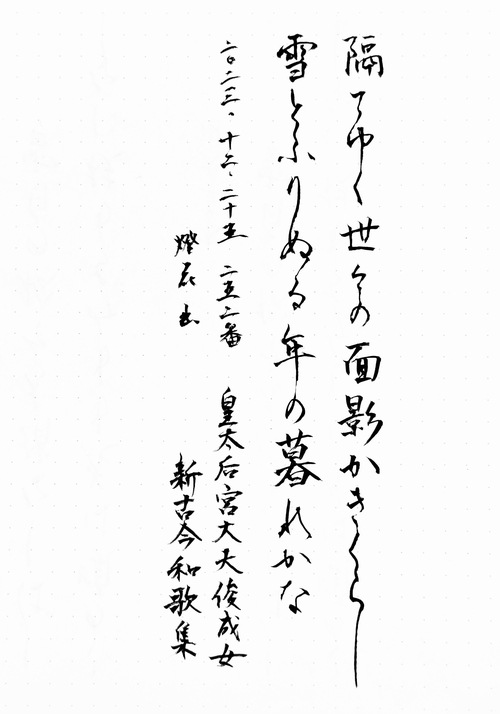 隔てゆく世々の面影かきくらし
雪とふりぬる年の暮れかな
二〇二三、十二、二十五 二五二番
皇太后宮大夫俊成女
新古今和歌集
燈花